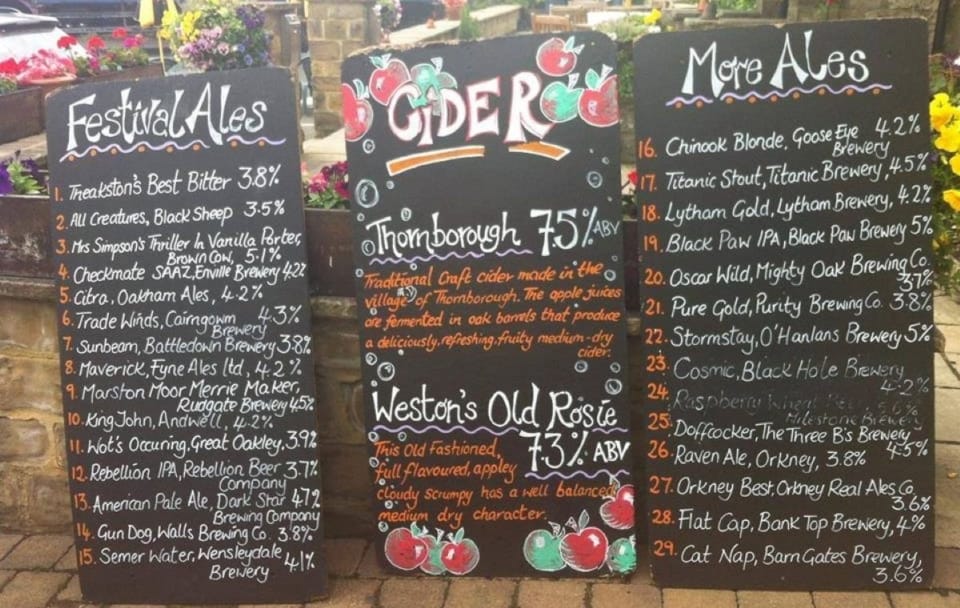 Festival Ales
1. Theakston's Best Bitter 3.8%
2. All Creatures, Black Sheep 3.5%
3. Mrs Simpson's Thriller In Vanilla Porter,
Brown Cow, 5.1%
4. Checkmate SAAZ, Enville Brewery 4.2%
5. Citra, Oakham Ales, 4.2%
6. Trade Winds, Cairngowm 4.3%
Brewery
7. Sunbeam, Battledown Brewery 3.8%
8. Maverick, Fyne Ales ltd, 4.2%
9. Marston Moor Merrie Maker,
Rudgate Brewery 4.5%
10. King John, Andwell, 4.2%
11. Wot's Occuring, Great Oakley, 3.9%
12. Rebellion IPA, Rebellion Beer 3.7%
Company
13. American Pale Ale, Dark Star 4.7%
Brewing Company
14. Gun Dog, Walls Brewing Co. 3.8%
15. Semer Water, Wensleydale 4.1%
Brewery
CiDER
Thornborough 7.5% ABV
Traditional craft cider made in the
village of Thornborough. The apple juices
are fermented in oak barrels that produce
a deliciously, refreshing, fruity medium-dry
cider.
Weston's Old Rosie
7.3% ABV
This Old Fashioned,
full flavoured, appley
cloudy scrumpy has a well balanced
medium dry character.
More Ales
16. Chinook Blonde, Goose Eye 4.2%
Brewery
17. Titanic Stout, Titanic Brewery, 4.5%
18. Lytham Gold, Lytham Brewery, 4.2%
19. Black Paw IPA, Black Paw Brewery 5%
20. Oscar Wild, Mighty Oak Brewing Co.
3.7%
21. Pure Gold, Purity Brewing Co. 3.8%
22. Stormstay, O'Hanlans Brewery 5%
23. Cosmic, Black Hole Brewery
4.2%
24. Raspberry Wheat
Milestone Brewery
25. Doffcocker, The Three B's Brewery
4.5%
26. Raven Ale, Orkney, 3.8%
27. Orkney Best, Orkney Real Ales Co.
3.6%
28. Flat Cap, Bank Top Brewery, 4%
29. Cat Nap, Barn Gates Brewery,
3.6%